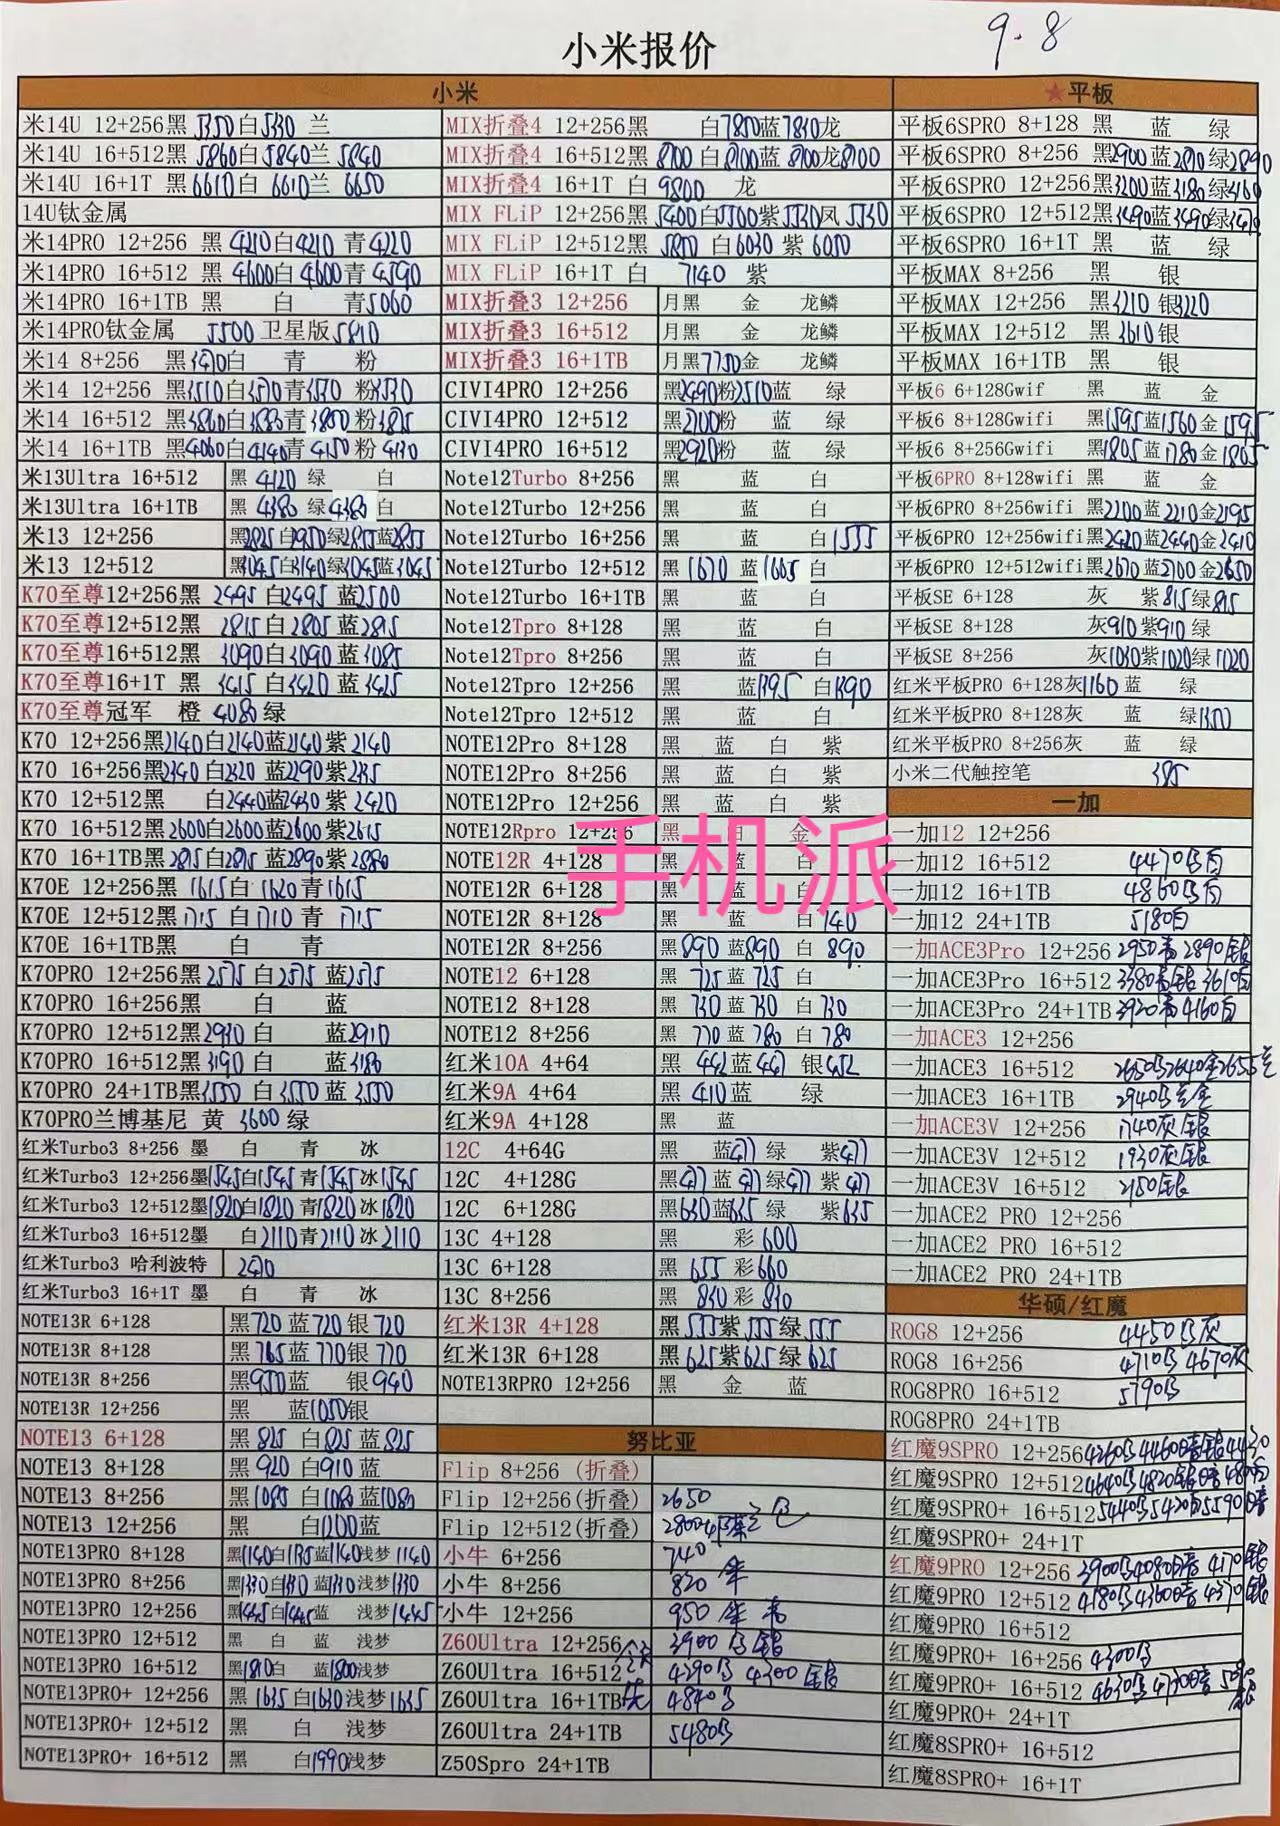 小米报价
9.8
小米
米14U 12+256黑 5350 白5330 兰
米14U 16+512黑 5860白5840兰 5840
米14U 16+1T 黑 6610白 6610兰 6650
14U钛金属
米14PRO 12+256 黑 4210白4210 青4220
米14PRO 16+512 黑 4600白4600青 4590
米14PRO 16+1TB 黑 白 青5060
米14PRO钛金属 5500 卫星版5810
米14 8+256 黑 白 青 粉
米14 12+256 黑3510白3570青 粉
米14 16+512 黑3860白 青 粉
米14 16+1TB 黑4060白4140青4150粉4130
米13Ultra 16+512 黑 4120 绿 白
米13Ultra 16+1TB 黑 4380 绿4380 白
米13 12+256 黑2825白2950绿2855蓝2855
米13 12+512 黑3045白3140绿3045蓝3045
K70至尊12+256黑 2495 白2495 蓝2500
K70至尊12+512黑 2815白2805蓝2815
K70至尊16+512黑 3090白3090 蓝3085
K70至尊16+1T 黑 3415 白3420 蓝3425
K70至尊冠军 橙 4080绿
K70 12+256黑2140白2140蓝2140紫2140
K70 16+256黑2340白2320 蓝2290紫
K70 12+512黑 白2440蓝2430紫 2420
K70 16+512黑2600白2600蓝2600紫2615
K70 16+1TB黑2815白2815蓝2890紫2880
K70E 12+256黑 1615白 1620青1615
K70E 12+512黑1715 白1710青 1715
K70E 16+1TB黑 白 青
K70PRO 12+256黑2575白2575蓝2575
K70PRO 16+256黑 白 蓝
K70PRO 12+512黑2930白 蓝2910
K70PRO 16+512黑3190白 蓝3180
K70PRO 24+1TB黑3550 白3550蓝3550
K70PRO兰博基尼 黄 3600绿
红米Turbo3 8+256 墨 白 青 冰
红米Turbo3 12+256墨1545白1545青1545冰1545
红米Turbo3 12+512墨1820白1820青1820冰1820
红米Turbo3 16+512墨 白2110青2110冰2110
红米Turbo3 哈利波特
红米Turbo3 16+1T 墨 白 青 冰
NOTE13R 6+128 黑720蓝720银720
NOTE13R 8+128 黑765蓝770银770
NOTE13R 8+256 黑950蓝 银940
NOTE13R 12+256 黑 蓝1050银
NOTE13 6+128 黑825 白825蓝825
NOTE13 8+128 黑920 白910蓝
NOTE13 8+256 黑1085 白1080蓝1080
NOTE13 12+256 黑 白1200蓝
NOTE13PRO 8+128 黑1140白1135蓝1140浅梦1140
NOTE13PRO 8+256 黑1330白1310蓝1330浅梦1330
NOTE13PRO 12+256 黑1445白1445蓝 浅梦1445
NOTE13PRO 12+512 黑 白 蓝 浅梦
NOTE13PRO 16+512 黑1810白 蓝1800浅梦
NOTE13PRO+ 12+256 黑1635白1630浅梦1635
NOTE13PRO+ 12+512 黑 白 浅梦
NOTE13PRO+ 16+512 黑 白1990浅梦
MIX折叠4 12+256黑 白7850蓝7830龙
MIX折叠4 16+512黑 8100 白8100蓝 8100龙8100
MIX折叠4 16+1T 白 9800 龙
MIX FLiP 12+256黑 5400白5500紫5530凤5530
MIX FLiP 12+512黑 白6030 紫 6050
MIX FLiP 16+1T 白 7140 紫
MIX折叠3 12+256 月黑 金 龙鳞
MIX折叠3 16+512 月黑 金 龙鳞
MIX折叠3 16+1TB 月黑7750金 龙鳞
CIVI4PRO 12+256 黑2490粉2510蓝 绿
CIVI4PRO 12+512 黑2700粉 蓝 绿
CIVI4PRO 16+512 黑2920粉 蓝 绿
Note12Turbo 8+256 黑 蓝 白
Note12Turbo 12+256 黑 蓝 白
Note12Turbo 16+256 黑 蓝 白1555
Note12Turbo 12+512 黑1670 蓝1665 白
Note12Turbo 16+1TB 黑 蓝 白
Note12Tpro 8+128 黑 蓝 白
Note12Tpro 8+256 黑 蓝 白
Note12Tpro 12+256 黑 蓝1395 白1390
Note12Tpro 12+512 黑 蓝 白
NOTE12Pro 8+128 黑 蓝 白 紫
NOTE12Pro 8+256 黑 蓝 白 紫
NOTE12Pro 12+256 黑 蓝 白 紫
NOTE12Rpro 12+256 黑 白 金
NOTE12R 4+128 黑 蓝 白
NOTE12R 6+128 黑 蓝 白
NOTE12R 8+128 黑 蓝 白
NOTE12R 8+256 黑890 蓝890 白 890
NOTE12 6+128 黑 725蓝725 白
NOTE12 8+128 黑 730蓝730 白730
NOTE12 8+256 黑 770蓝780 白780
红米10A 4+64 黑 442蓝447 银452
红米9A 4+64 黑 410蓝 绿
红米9A 4+128 黑 蓝
12C 4+64G 黑 蓝477绿 紫477
12C 4+128G 黑477蓝477绿477紫477
12C 6+128G 黑630蓝635绿 紫635
13C 4+128 黑 彩600
13C 6+128 黑 655 彩660
13C 8+256 黑 810彩 810
红米13R 4+128 黑555紫555绿555
红米13R 6+128 黑625紫625绿625
NOTE13RPRO 12+256 黑 金 蓝
努比亚
Flip 8+256 (折叠)
Flip 12+256(折叠) 2650
Flip 12+512(折叠)
小牛 6+256 740
小牛 8+256 820
小牛 12+256 950
Z60Ultra 12+256 3900 银
Z60Ultra 16+512 4300银
Z60Ultra 16+1TB 4840
Z60Ultra 24+1TB 5480
Z50Spro 24+1TB
★平板
平板6SPRO 8+128 黑 蓝 绿
平板6SPRO 8+256 黑2900蓝2870绿2890
平板6SPRO 12+256黑3200蓝3180绿3160
平板6SPRO 12+512黑3490蓝3490绿3470
平板6SPRO 16+1T 黑 蓝 绿
平板MAX 8+256 黑 银
平板MAX 12+256 黑3210 银3220
平板MAX 12+512 黑3610银
平板MAX 16+1TB 黑 银
平板6 6+128Gwif 黑 蓝 金
平板6 8+128Gwifi 黑1595蓝1560金1595
平板6 8+256Gwifi 黑1805蓝1780金1805
平板6PRO 8+128wifi 黑 蓝 金
平板6PRO 8+256wifi 黑2200蓝2210金2195
平板6PRO 12+256wifi黑2420蓝2440金2410
平板6PRO 12+512wifi黑2670蓝2700金2650
平板SE 6+128 灰 紫815绿815
平板SE 8+128 灰910紫910绿
平板SE 8+256 灰1030紫1020绿1020
红米平板PRO 6+128灰1160蓝 绿
红米平板PRO 8+128灰 蓝 绿1350
红米平板PRO 8+256灰 蓝 绿
小米二代触控笔 385
一加
一加12 12+256
一加12 16+512 4470 白
一加12 16+1TB 4860 白
一加12 24+1TB 5180白
一加ACE3Pro 12+256 2950青2890银
一加ACE3Pro 16+512 3380青银3610白
一加ACE3Pro 24+1TB 3920青4160白
一加ACE3 12+256
一加ACE3 16+512
一加ACE3 16+1TB
一加ACE3V 12+256 1740灰银
一加ACE3V 12+512 1930灰银
一加ACE3V 16+512 2150银
一加ACE2 PRO 12+256
一加ACE2 PRO 16+512
一加ACE2 PRO 24+1TB
华硕/红魔
ROG8 12+256 4450 灰
ROG8 16+256 4710 4670灰
ROG8PRO 16+512 5790
ROG8PRO 24+1TB
红魔9SPRO 12+256
红魔9SPRO 12+512
红魔9SPRO+ 16+512
红魔9SPRO+ 24+1T
红魔9PRO 12+256
红魔9PRO 12+512
红魔9PRO 16+512
红魔9PRO+ 16+256 4300
红魔9PRO+ 16+512
红魔9PRO+ 24+1T
红魔8SPRO+ 16+512
红魔8SPRO+ 16+1T
手机派